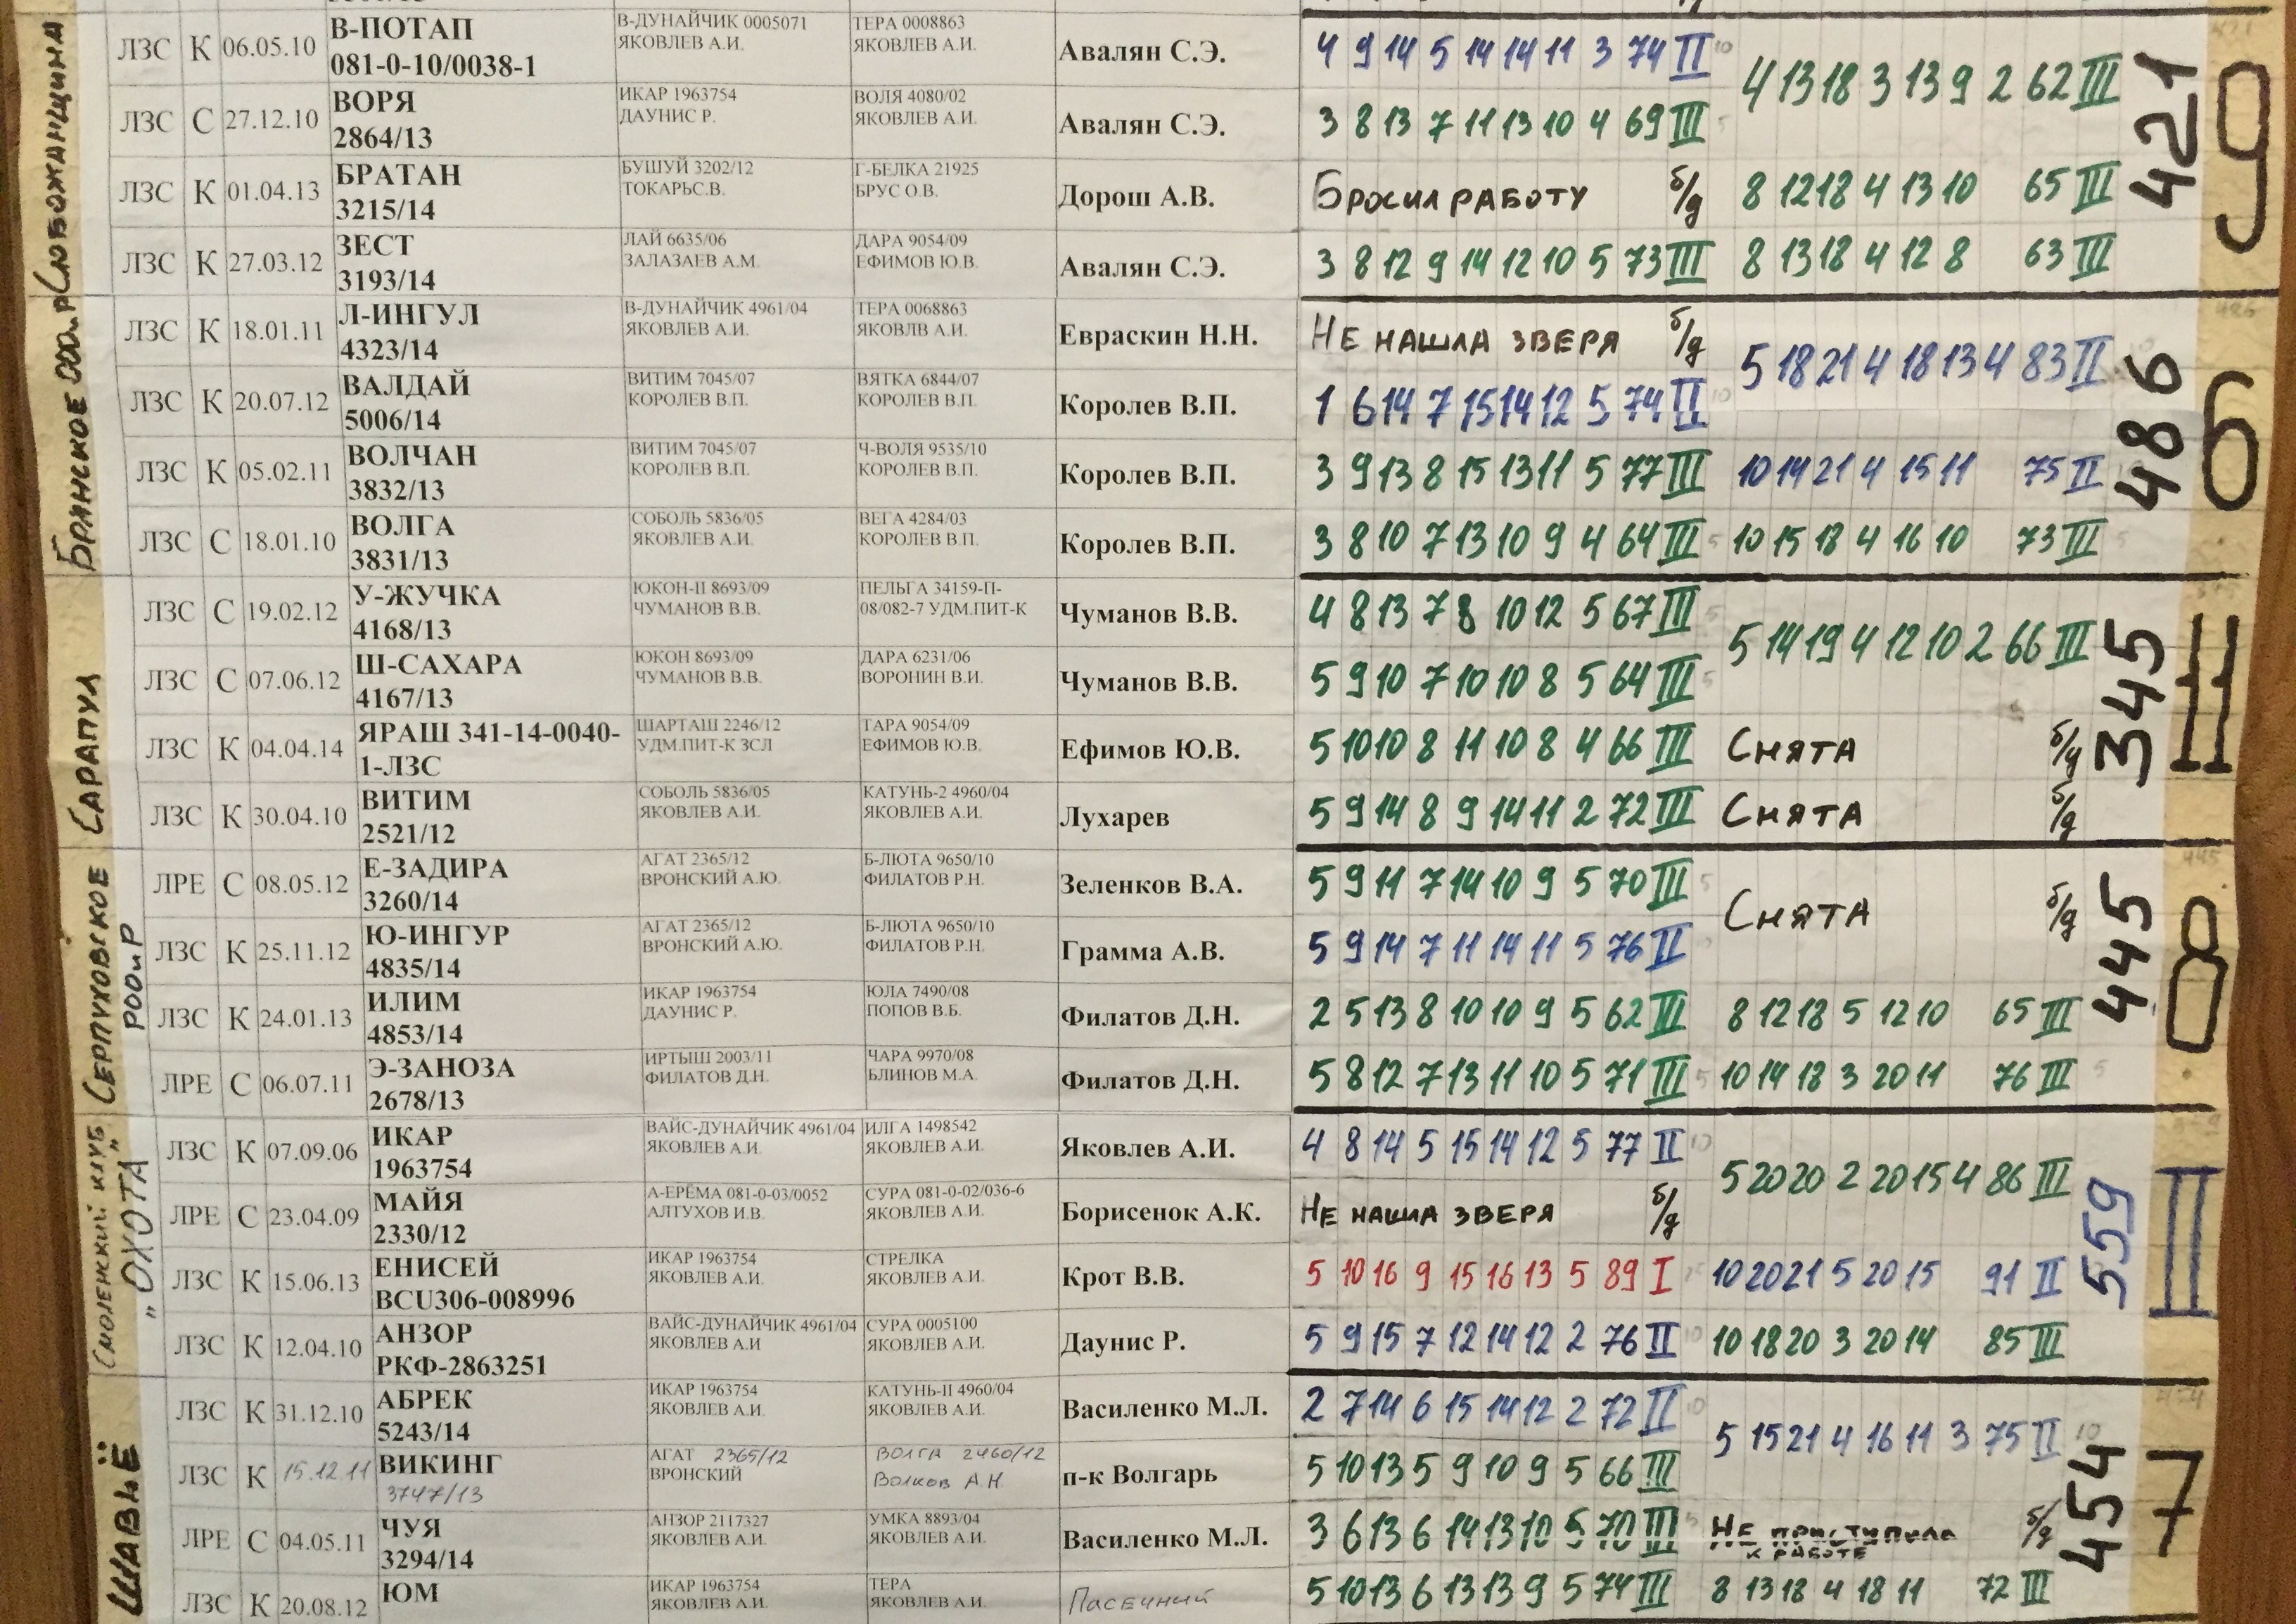 Слобожанщина
ЛЗС К 06.05.10 В-ПОТАП В-ДУНАЙЧИК 0005071 ТЕРА 0008863 Авалян С.Э. 4 9 14 5 14 14 11 3 74 II 10
081-0-10/0038-1 ЯКОВЛЕВ А.И. ЯКОВЛЕВ А.И.
4 13 18 3 13 9 2 62 III
ЛЗС С 27.12.10 ВОРЯ ИКАР 1963754 ВОЛЯ 4080/02 Авалян С.Э. 3 8 13 7 11 13 10 4 69 III 5
2864/13 ДАУНИС Р. ЯКОВЛЕВ А.И.
ЛЗС К 01.04.13 БРАТАН БУШУЙ 3202/12 Г-БЕЛКА 21925 Дорош А.В. Бросил работу б/д 8 12 18 4 13 10 65 III
3215/14 ТОКАРЬС.В. БРУС О.В.
ЛЗС К 27.03.12 ЗЕСТ ЛАЙ 6635/06 ДАРА 9054/09 Авалян С.Э. 3 8 12 9 14 12 10 5 73 III 8 13 18 4 12 8 63 III
3193/14 ЗАЛАЗАЕВ А.М. ЕФИМОВ Ю.В.
421
9
Брянское ООО и Р
ЛЗС К 18.01.11 Л-ИНГУЛ В-ДУНАЙЧИК 4961/04 ТЕРА 0068863 Евраскин Н.Н. Не нашла зверя б/д
4323/14 ЯКОВЛЕВ А.И. ЯКОВЛВ А.И.
5 18 21 4 18 13 4 83 II
ЛЗС К 20.07.12 ВАЛДАЙ ВИТИМ 7045/07 ВЯТКА 6844/07 Королев В.П. 1 6 14 7 15 14 12 5 74 II 10
5006/14 КОРОЛЕВ В.П. КОРОЛЕВ В.П.
ЛЗС К 05.02.11 ВОЛЧАН ВИТИМ 7045/07 Ч-ВОЛЯ 9535/10 Королев В.П. 3 9 13 8 15 13 11 5 77 III 10 14 21 4 15 11 75 II
3832/13 КОРОЛЕВ В.П. КОРОЛЕВ В.П.
ЛЗС С 18.01.10 ВОЛГА СОБОЛЬ 5836/05 ВЕГА 4284/03 Королев В.П. 3 8 10 7 13 10 9 4 64 III 5 10 15 18 4 16 10 73 III 5
3831/13 ЯКОВЛЕВ А.И. КОРОЛЕВ В.П.
486
6
Сарапул
ЛЗС С 19.02.12 У-ЖУЧКА ЮКОН-II 8693/09 ПЕЛЬГА 34159-П- Чуманов В.В. 4 8 13 7 8 10 12 5 67 III 5
4168/13 ЧУМАНОВ В.В. 08/082-7 УДМ.ПИТ-К
5 14 19 4 12 10 2 66 III
ЛЗС С 07.06.12 Ш-САХАРА ЮКОН 8693/09 ДАРА 6231/06 Чуманов В.В. 5 9 10 7 10 10 8 5 64 III 5
4167/13 ЧУМАНОВ В.В. ВОРОНИН В.И.
ЛЗС К 04.04.14 ЯРАШ 341-14-0040- ШАРТАШ 2246/12 ТАРА 9054/09 Ефимов Ю.В. 5 10 10 8 11 10 8 4 66 III Снята б/д
1-ЛЗС УДМ.ПИТ-К ЗСЛ ЕФИМОВ Ю.В.
ЛЗС К 30.04.10 ВИТИМ СОБОЛЬ 5836/05 КАТУНЬ-2 4960/04 Лухарев 5 9 14 8 9 14 11 2 72 III Снята б/д
2521/12 ЯКОВЛЕВ А.И. ЯКОВЛЕВ А.И.
345
11
Серпуховское РООиР
ЛРЕ С 08.05.12 Е-ЗАДИРА АГАТ 2365/12 Б-ЛЮТА 9650/10 Зеленков В.А. 5 9 11 7 14 10 9 5 70 III 5
3260/14 ВРОНСКИЙ А.Ю. ФИЛАТОВ Р.Н.
Снята б/д
ЛЗС К 25.11.12 Ю-ИНГУР АГАТ 2365/12 Б-ЛЮТА 9650/10 Грамма А.В. 5 9 14 7 11 14 11 5 76 II 10
4835/14 ВРОНСКИЙ А.Ю. ФИЛАТОВ Р.Н.
ЛЗС К 24.01.13 ИЛИМ ИКАР 1963754 ЮЛА 7490/08 Филатов Д.Н. 2 5 13 8 10 10 9 5 62 III 8 12 18 5 12 10 65 III
4853/14 ДАУНИС Р. ПОПОВ В.Б.
ЛРЕ С 06.07.11 Э-ЗАНОЗА ИРТЫШ 2003/11 ЧАРА 9970/08 Филатов Д.Н. 5 8 12 7 13 11 10 5 71 III 5 10 14 18 3 20 11 76 III 5
2678/13 ФИЛАТОВ Д.Н. БЛИНОВ М.А.
445
8
445
Смоленский клуб "ОХОТА"
ЛЗС К 07.09.06 ИКАР ВАЙС-ДУНАЙЧИК 4961/04 ИЛГА 1498542 Яковлев А.И. 4 8 14 5 15 14 12 5 77 II 10
1963754 ЯКОВЛЕВ А.И. ЯКОВЛЕВ А.И.
5 20 20 2 20 15 4 86 III
ЛРЕ С 23.04.09 МАЙЯ А-ЕРЁМА 081-0-03/0052 СУРА 081-0-02/036-6 Борисенок А.К. Не нашла зверя б/д
2330/12 АЛТУХОВ И.В. ЯКОВЛЕВ А.И.
ЛЗС К 15.06.13 ЕНИСЕЙ ИКАР 1963754 СТРЕЛКА Крот В.В. 5 10 16 9 15 16 13 5 89 I 10 20 21 5 20 15 91 II
BCU306-008996 ЯКОВЛЕВ А.И. ЯКОВЛЕВ А.И.
ЛЗС К 12.04.10 АНЗОР ВАЙС-ДУНАЙЧИК 4961/04 СУРА 0005100 Даунис Р. 5 9 15 7 12 14 12 2 76 II 10 10 18 20 3 20 14 85 III
РКФ-2863251 ЯКОВЛЕВ А.И ЯКОВЛЕВ А.И.
559
II
ШАВЬЁ
ЛЗС К 31.12.10 АБРЕК ИКАР 1963754 КАТУНЬ-II 4960/04 Василенко М.Л. 2 7 14 6 15 14 12 2 72 II 10
5243/14 ЯКОВЛЕВ А.И. ЯКОВЛЕВ А.И.
5 15 21 4 16 11 3 75 II 10
ЛЗС К 15.12.11 ВИКИНГ АГАТ 2365/12 ВОЛГА 2460/12 п-к Волгарь 5 10 13 5 9 10 9 5 66 III
3747/13 ВРОНСКИЙ Волков А.Н.
ЛРЕ С 04.05.11 ЧУЯ АНЗОР 2117327 УМКА 8893/04 Василенко М.Л. 3 6 13 6 14 13 10 5 70 III 5 Не приступила б/д
3294/14 ЯКОВЛЕВ А.И. ЯКОВЛЕВ А.И. к работе
ЛЗС К 20.08.12 ЮМ ИКАР 1963754 ТЕРА Пасечный 5 10 13 6 13 13 9 5 74 III 8 13 18 4 18 11 72 III
ЯКОВЛЕВ А.И. ЯКОВЛЕВ А.И.
454
7